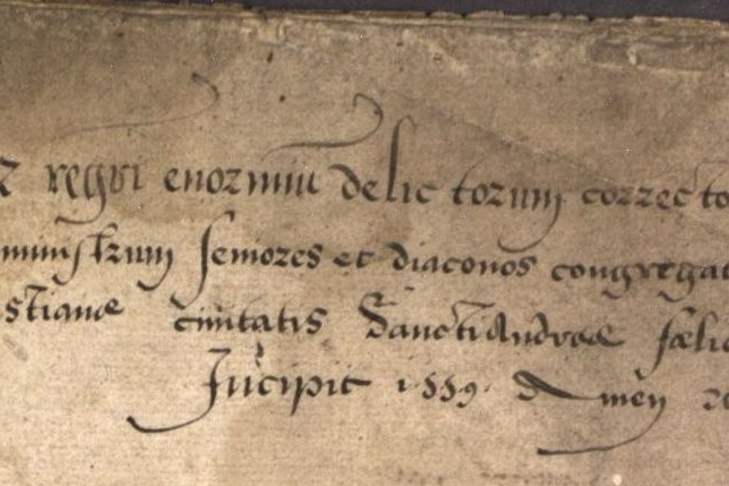 enormiū delictorum correcto
ministrum seniores et diaconos congregat
stiane civitatis Sanctiandreæ fælic
Incipit 1559 Amen